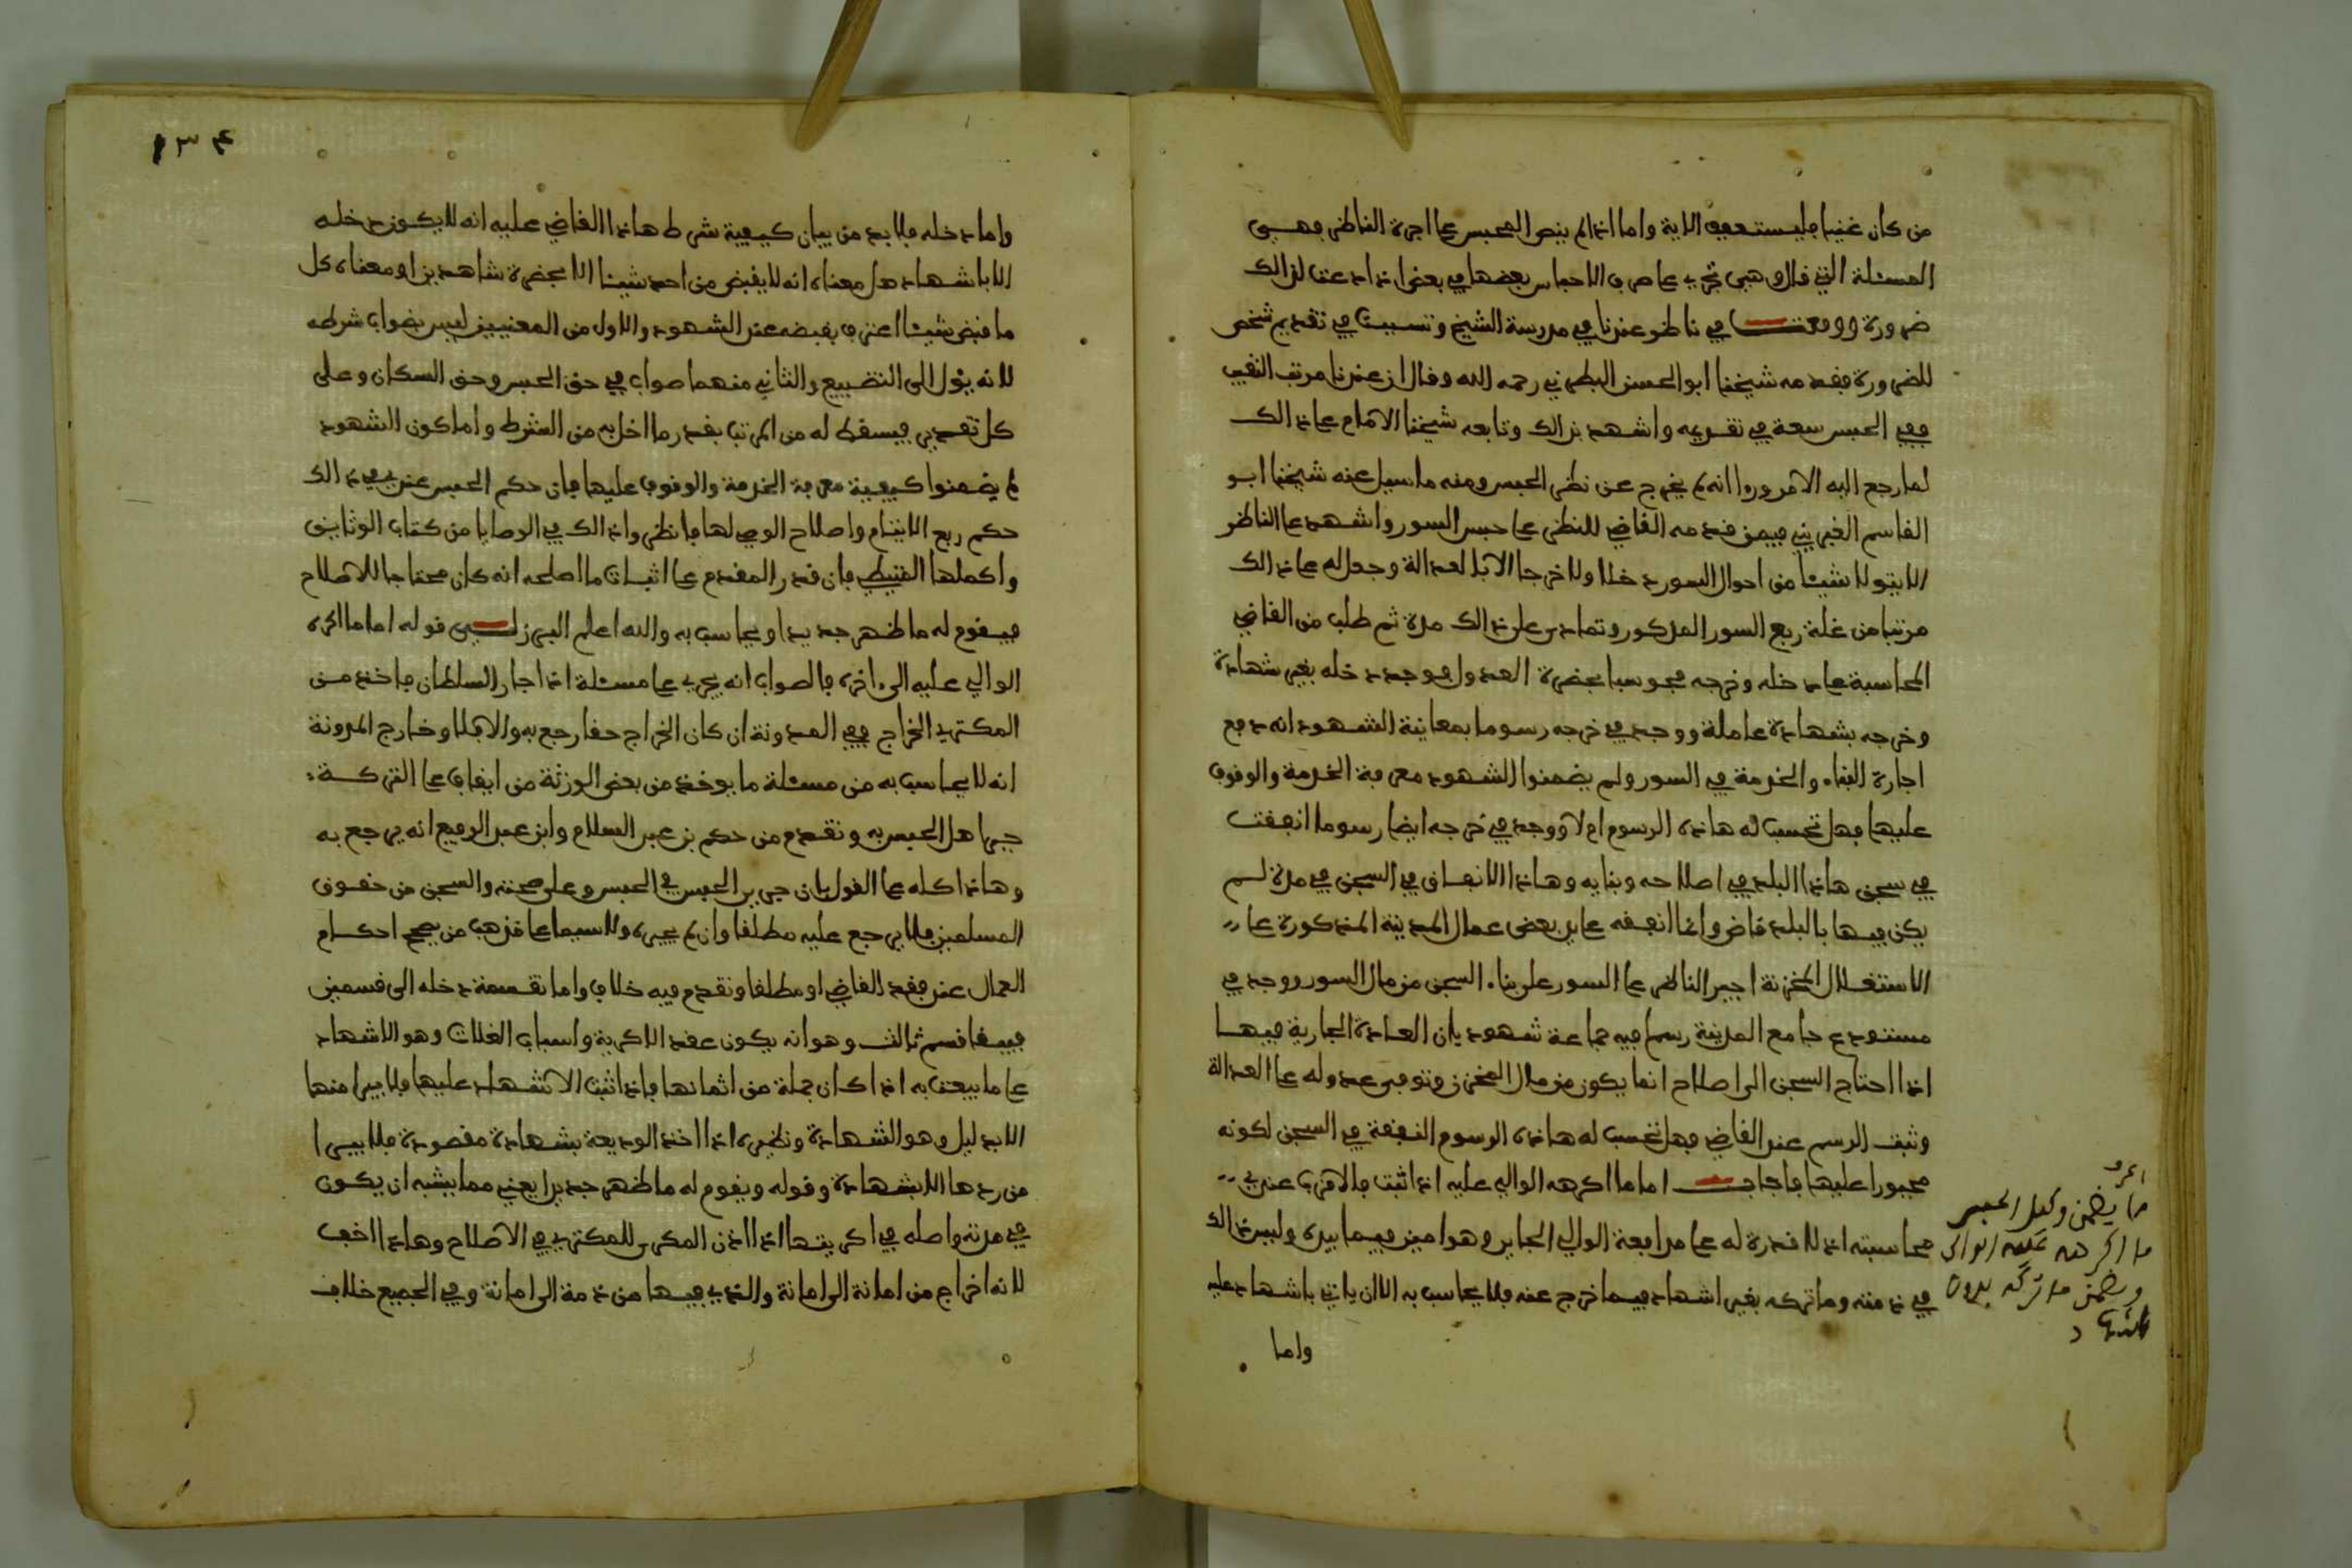 من كان غنيا فليستعفف الاية واما اذا لم ينص المحبس على اجرة الناظر فهي
المسئلة التي قال وهي تجري على صرف الاحباس بعضها في بعض اذا دعت لذالك
ضرورة ووقعت في ناظر عندنا في مدرسة الشيخ وتسببت في تقديم شخص
للضرورة فقدمه شيخنا ابو الحسن البطرني رحمه الله وقال ان عندنا مرتب النقيب
ففي الحبس سعة في تقديمه واشهد بذالك وتابعه شيخنا الامام على ذالك
لما رجع اليه الامر وروا انه لم يخرج عن نظر الحبس ومنه ما سيل عنه شيخنا ابو
القاسم الغبريني فيمن قدمه القاضي للنظر على حبس السور واشهد على الناظر
الا يتولا شيئا من احوال السور دخلا ولا خرجا الا بالعدالة وجعل له على ذالك
مرتبا من غلة ربع السور المذكور وتمادى على ذالك مدة ثم طلب من القاضي
المحاسبة على دخله وخرجه فحوسبا بحضرة العدول فوجد دخله بغير شهادة
وخرجه بشهادة عاملة ووجد في خرجه رسوما بمعاينة الشهود انه دفع
اجارة البناء والخدمة في السور ولم يضمنوا الشهود معرفة الخدمة والوقوف
عليها فهل تحسب له هاذه الرسوم ام لا ووجد في خرجه ايضا رسوما انفقت
في سجن هاذا البلد في اصلاحه وبنايه وهاذا الانفاق في السجن في مدة لم
يكن فيها بالبلد قاض وانما انفقه على يد بعض عمال المدينة المذكورة على
الاستغلال المخزنة اجبر الناظر على السور على بناء السجن من مال السور ووجد في
مستودع جامع المدينة رسما فيه جماعة شهود بان العادة الجارية فيها
اذا احتاج السجن الى اصلاح انما يكون من مال المخزن وتوفي عدوله على العدالة
وثبت الرسم عند القاضي فهل تحسب له هاذه الرسوم النفقة في السجن لكونه
مجبورا عليها فاجاب اما ما اكرهه الوالي عليه اذا ثبت فالاقرب عندي
محاسبته اذ لا قدرة له على مدافعة الوالي الجاير وهو امين فيما بيده وليس ذالك
في ذمته وما تركه بغير اشهاد فيما خرج عنه فلا يحاسب به الا ان ياتي باشهاد عليه
واما
ما يضمن وكيل الحبس
ما اكرهه عليه الوالي
ويضمن ما تركه بدون
اشهاد
١٣٤
واما دخله فلا بد من بيان كيفية شرط هاذا القاضي عليه انه لا يكون دخله
الا باشهاد هل معناه انه لا يقبض من احد شيئا الا بحضرة شاهدين او معناه كل
ما قبض شيئا اعترف بقبضه عند الشهود والاول من المعنيين ليس بصواب شرطه
لانه يؤل الى التضييع والثاني منهما صواب في حق الحبس وحق السكان وعلى
كل تقدير فيسقط له من المرتب بقدر ما اخل به من الشرط واما كون الشهود
لم يضمنوا كيفية معرفة الخدمة والوقوف عليها فان حكم الحبس عندي في ذالك
حكم ربع الايتام واصلاح الوصي لها فانظر واذالك في الوصايا من كتاب الوثايق
واكملها المتيطي فان قدر المقدم على اثبات ما اصلحه انه كان محتاجا للاصلاح
فيقوم له ما ظهر جديدا ويحاسب به والله اعلم البرزلي قوله اما ما اكره
الوالي عليه الى اخره فالصواب انه يجري على مسئلة اذا جار السلطان فاخذ من
المكتري الخراج ففي المدونة ان كان الخراج حقا رجع به والا فلا وخارج المدونة
انه لا يحاسب به من مسئلة ما يوخذ من بعض الورثة من ايقاف على التركة
جبر اهل الحبس به وتقدم من حكم بن عبد السلام وابن عبد الرفيع انه يرجع به
وهاذا كله على القول بان جرير الحبس في الحبس وعلى صحته والسجن من حقوق
المسلمين فلا يرجع عليه مطلقا وان لم يجبره ولا سيما على مذهب من يصحح احكام
العمال عند فقد القاضي او مطلقا وتقدم فيه خلاف واما تقسمة دخله الى قسمين
فيبقا قسم ثالث وهو انه يكون عقد الاكرية واسباب الغلات وهو الاشهاد
على ما بيعت به اذا كان جملة من اثمانها فاذا ثبت الاشهاد عليها فلا يبرا منها
الا بدليل وهو الشهادة ونظيره اذا اخذ الوديعة بشهادة مقصودة فلا يبرا
من ردها الا بشهادة وقوله ويقوم له ما ظهر جديدا يعني مما يشبه ان يكون
في مدته واصله في اكريتها اذا اذن المكري للمكتري في الاصلاح وهاذا اخف
لانه اخراج من امانة الى امانة والذي فيها من ذمة الى امانة وفي الجميع خلاف